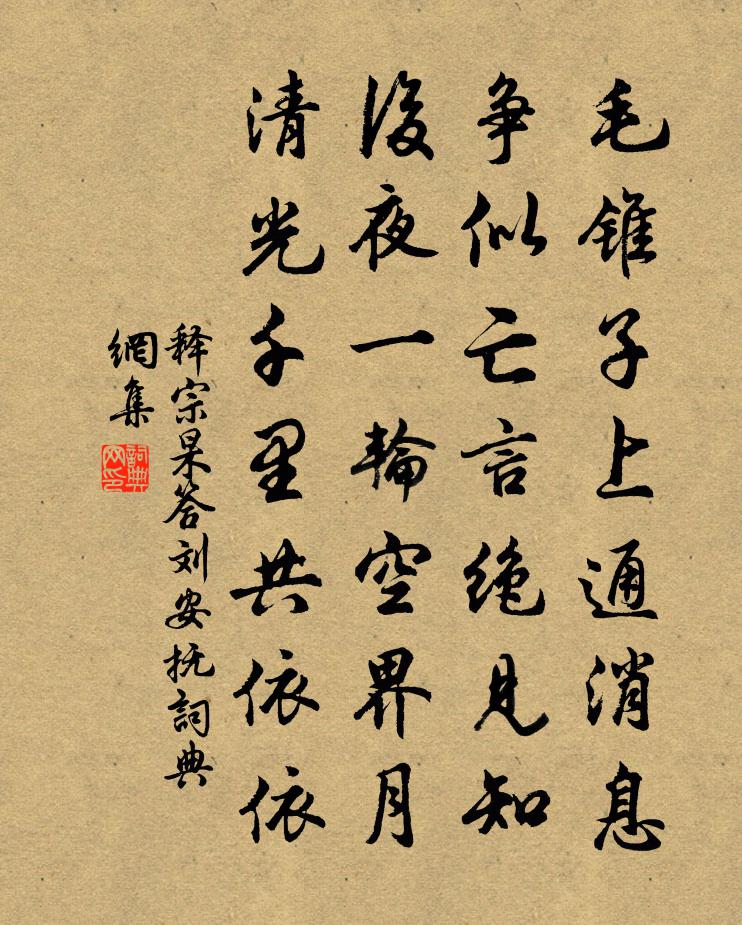 毛锥子上通消息
争似亡言绝见知
後夜一輪空界月
清光千里共依依
释宗杲答刘安抚詞典
網集
詞典
网印